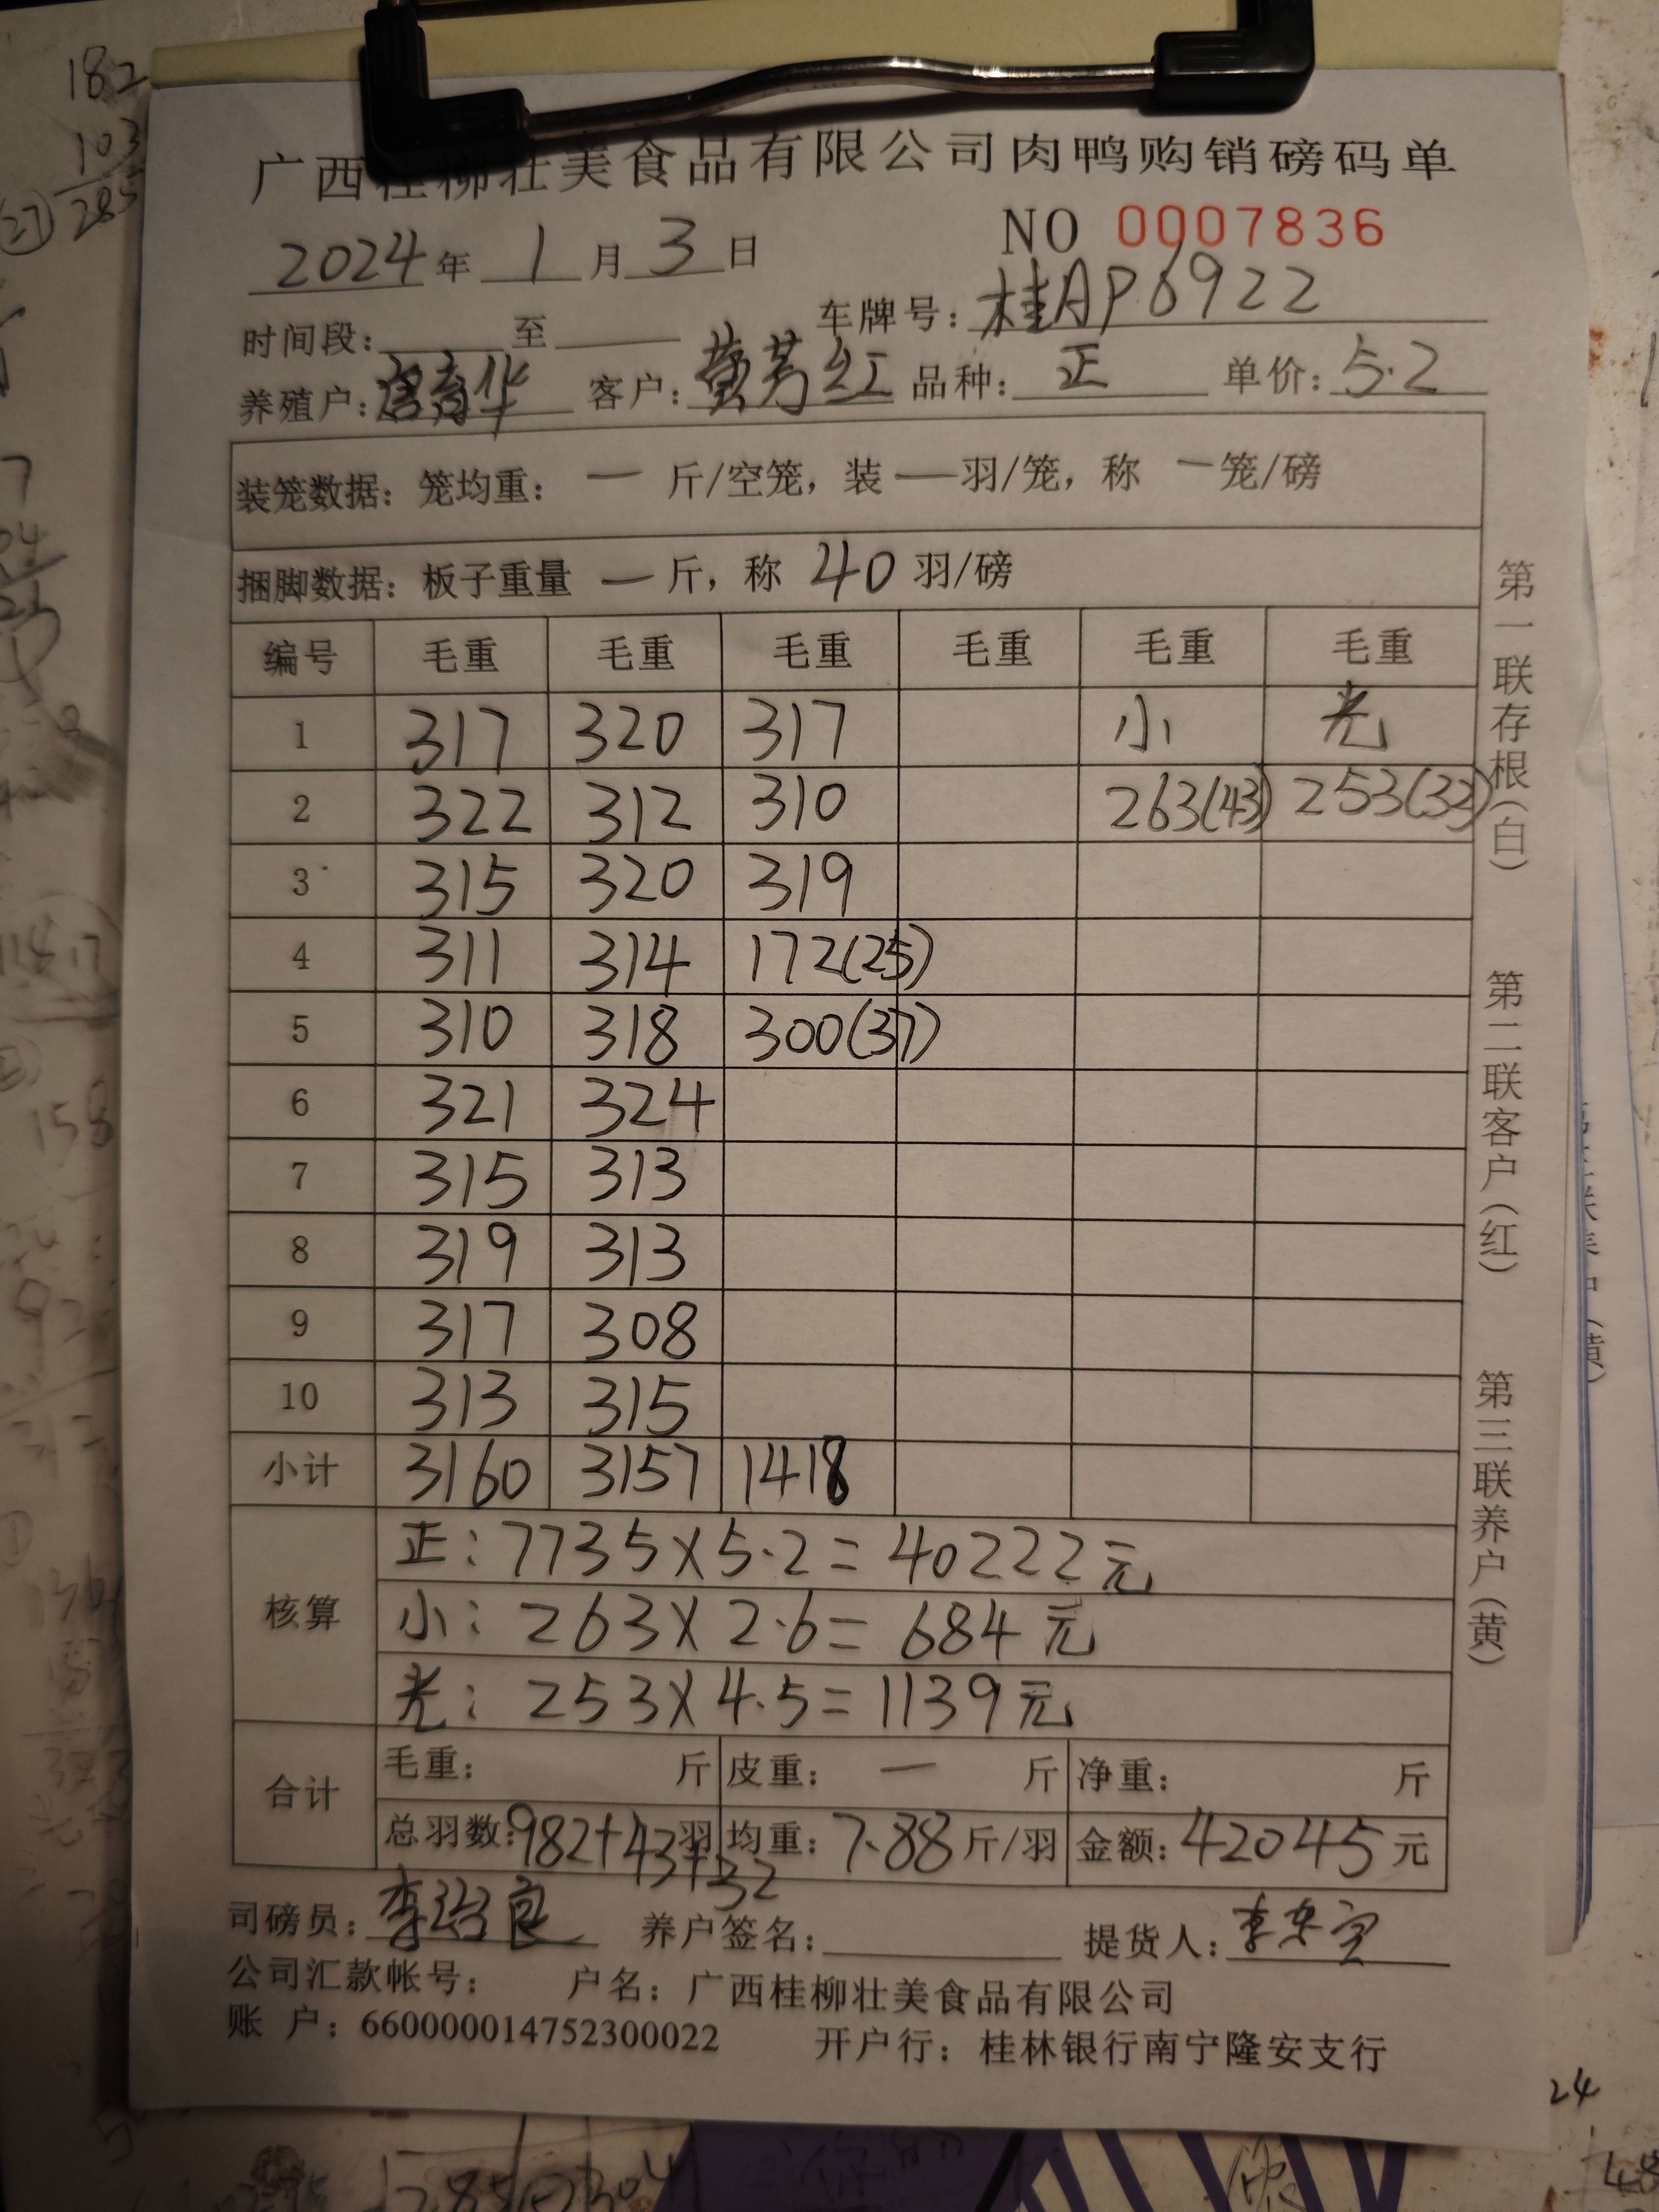 广西桂柳壮美食品有限公司肉鸭购销磅码单
2024年 1 月 3 日 NO 0007836
时间段: 至 车牌号: 桂AP6922
养殖户: 客户: 黄芳红 品种: 正 单价: 5.2
装笼数据: 笼均重: — 斤/空笼, 装 — 羽/笼, 称 — 笼/磅
捆脚数据: 板子重量 — 斤, 称 40 羽/磅
编号 毛重 毛重 毛重 毛重 毛重 毛重
1 317 320 317 小 光
2 322 312 310 263(43) 253(32)
3 315 320 319
4 311 314 172(25)
5 310 318 300(37)
6 321 324
7 315 313
8 319 313
9 317 308
10 313 315
小计 3160 3157 1418
核算
正: 7735×5.2=40222元
小: 263×2.6=684元
光: 253×4.5=1139元
合计
毛重: 斤 皮重: — 斤 净重: 斤
总羽数: 982+43+32 羽 均重: 7.88 斤/羽 金额: 42045 元
司磅员: 养户签名: 提货人:
公司汇款帐号: 户名: 广西桂柳壮美食品有限公司
账 户: 660000014752300022 开户行: 桂林银行南宁隆安支行
第一联存根(白)
第二联客户(红)
第三联养户(黄)
182
103
285
158
24